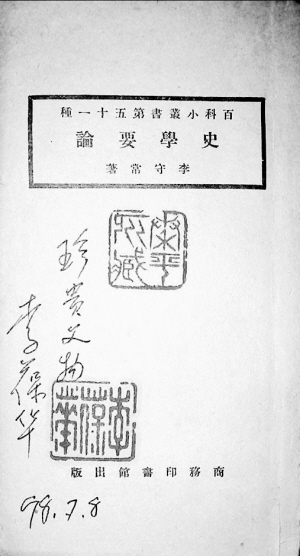 種一十五第書叢小科百
論要學史
著常守李
珍贵文物
李葆华
李葆華
版出館書印務商
98.7.8